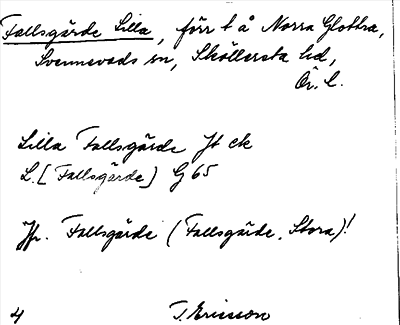 Fallsgärde Lilla, förr t å Norra Glottra,
Svennevads sn, Sköllersta hd,
Ör. l.
Lilla Fallsgärde Jt ck
L. [Fallsgärde] G 65
Jfr. Fallsgärde (Fallsgärde, Stora)!
4 T. Ericsson